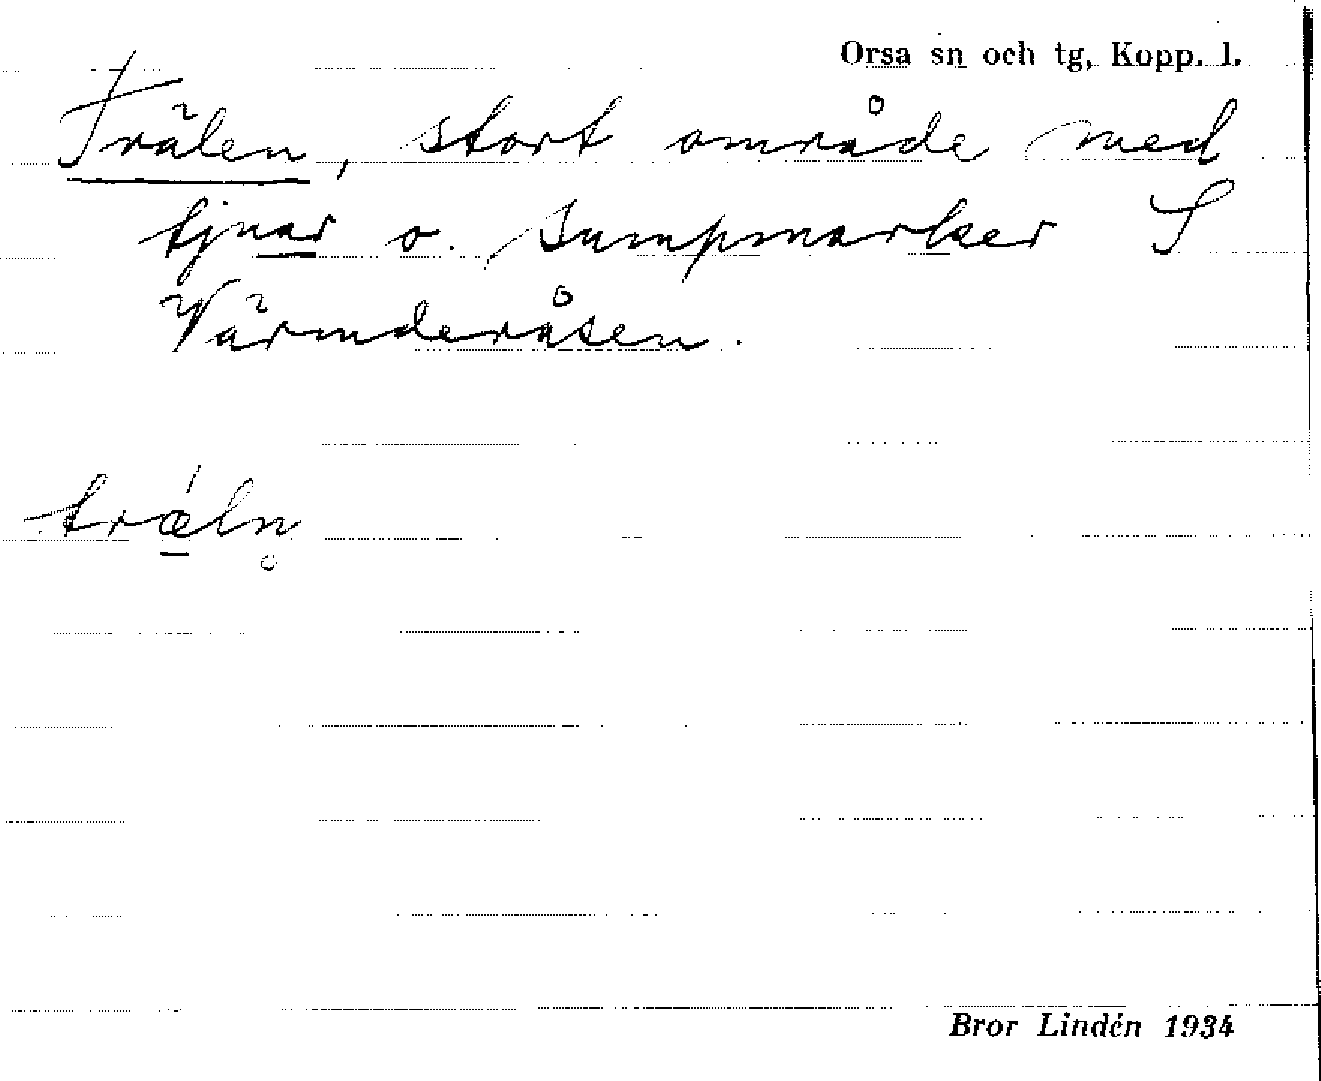 Orsa sn och tg, Kopp. l.
Trälen, stort område med
tjnar o. sumpmarker S
Värmderåsen.
trǽln̥
Bror Lindén 1934